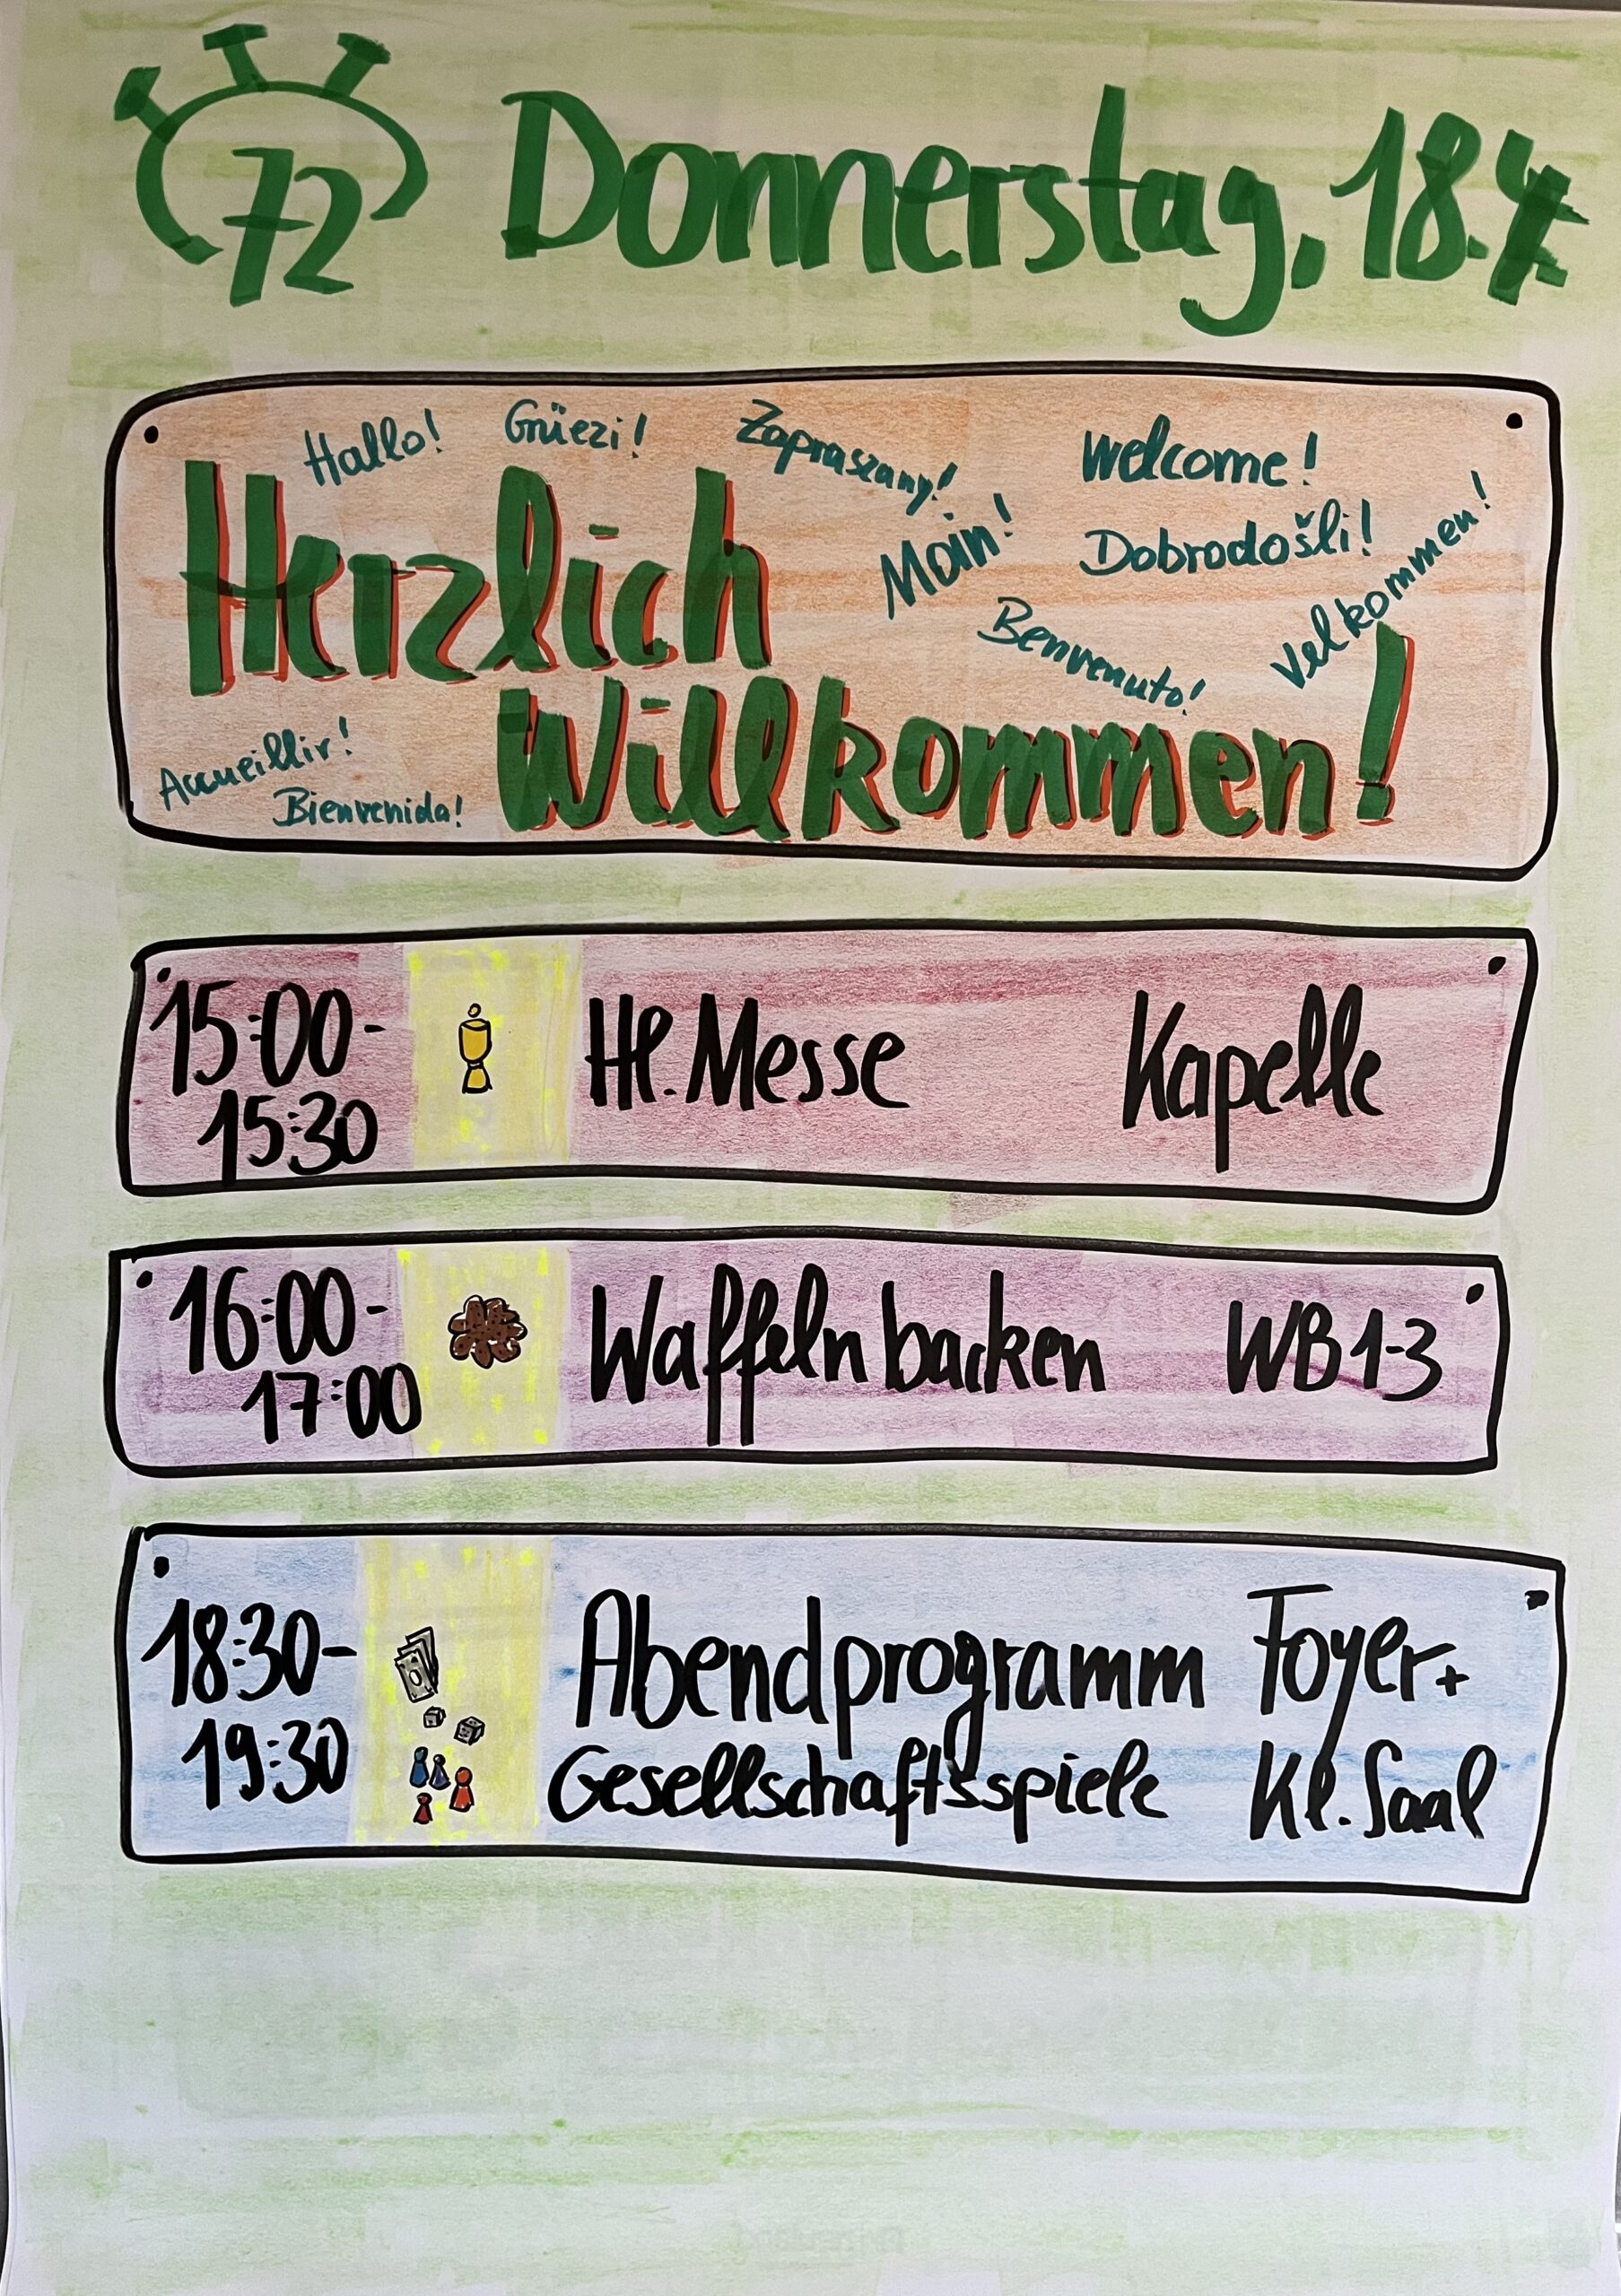 72
Donnerstag, 18.4.
Hallo! Grüezi! Zapraszamy! Welcome!
Moin! Dobrodošli! Velkommen!
Benvenuto!
Herzlich
Willkommen!
Accueillir!
Bienvenida!
15:00- Hl. Messe Kapelle
15:30
16:00- Waffeln backen WB1-3
17:00
18:30- Abendprogramm Foyer+
19:30 Gesellschaftsspiele Kl. Saal